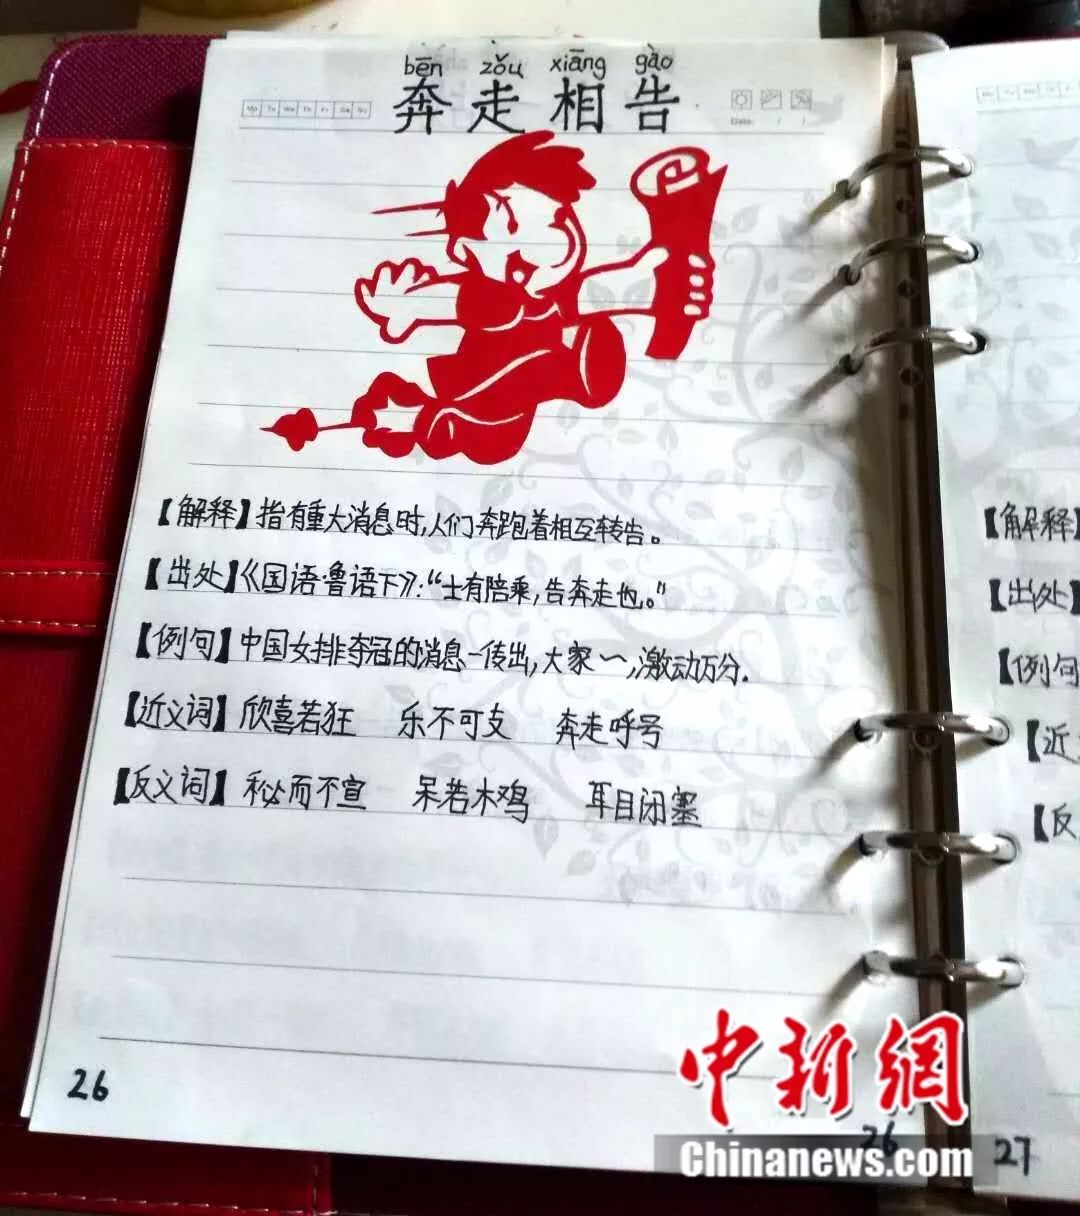 bēn zǒu xiāng gào
奔走相告
Date: / /
【解释】指有重大消息时,人们奔跑着相互转告。
【出处】《国语·鲁语下》:“士有陪乘,告奔走也。”
【例句】中国女排夺冠的消息一传出,大家~,激动万分.
【近义词】欣喜若狂 乐不可支 奔走呼号
【反义词】秘而不宣 呆若木鸡 耳目闭塞
26
【解释】
【出处】
【例句
【近
【反
26
27
中新网
Chinanews.com